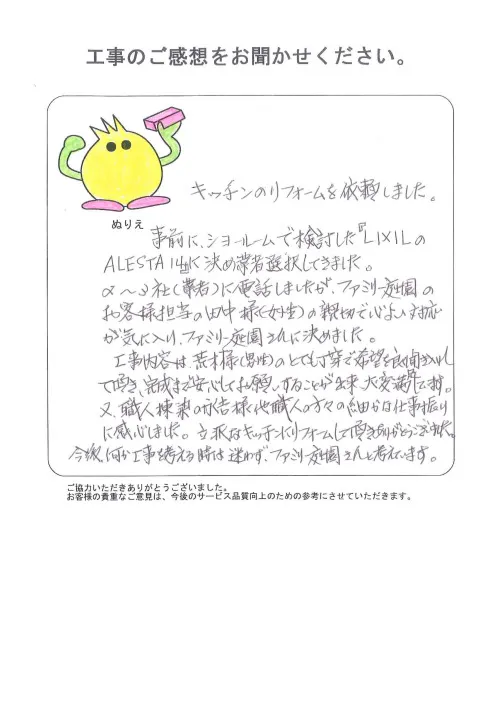 工事のご感想をお聞かせください。
キッチンのリフォームを依頼しました。
ぬりえ
事前に、ショールームで検討した『LIXILの
ALESTA』に決め業者選択してきました。
2〜3社(業者)に電話しましたが、ファミリー庭園の
お客様担当の田中様(女性)の親切で心よい対応
が気に入り、ファミリー庭園さんに決めました。
工事内容は、荒木様(男性)のとても丁寧で希望を良聞き入れ
て頂き、完成まで安心してお願いすることが出来、大変満足です。
又、職人棟梁の永吉様や他職人の方々の細かな仕事振り
に感心しました。立派なキッチンにリフォームして頂きありがとうございました。
今後、何か工事を考える時は迷わず、ファミリー庭園さんと考えています。
ご協力いただきありがとうございました。
お客様の貴重なご意見は、今後のサービス品質向上のための参考にさせていただきます。